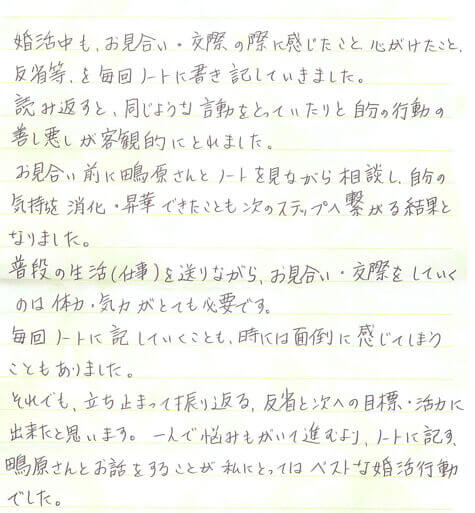 婚活中も、お見合い・交際の際に感じたこと、心がけたこと、
反省等、を毎回ノートに書き記していきました。
読み返すと、同じような言動をとっていたりと自分の行動の
善し悪しが客観的にとれました。
お見合い前に鴫原さんとノートを見ながら相談し、自分の
気持を消化・昇華できたことも次のステップへ繋がる結果と
なりました。
普段の生活(仕事)を送りながら、お見合い・交際をしていく
のは体力・気力がとても必要です。
毎回ノートに記していくことも、時には面倒に感じてしまう
こともありました。
それでも、立ち止まって振り返る、反省と次への目標・活力に
出来たと思います。一人で悩みもがいて進むより、ノートに記す、
鴫原さんとお話をすることが私にとってはベストな婚活行動
でした。